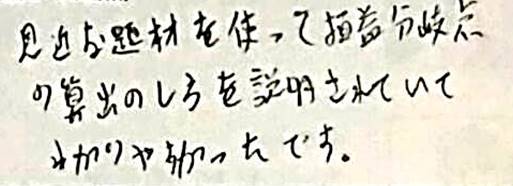 見近な題材を使って損益分岐点
の算出のしろを説明されていて
わかりやすかったです。